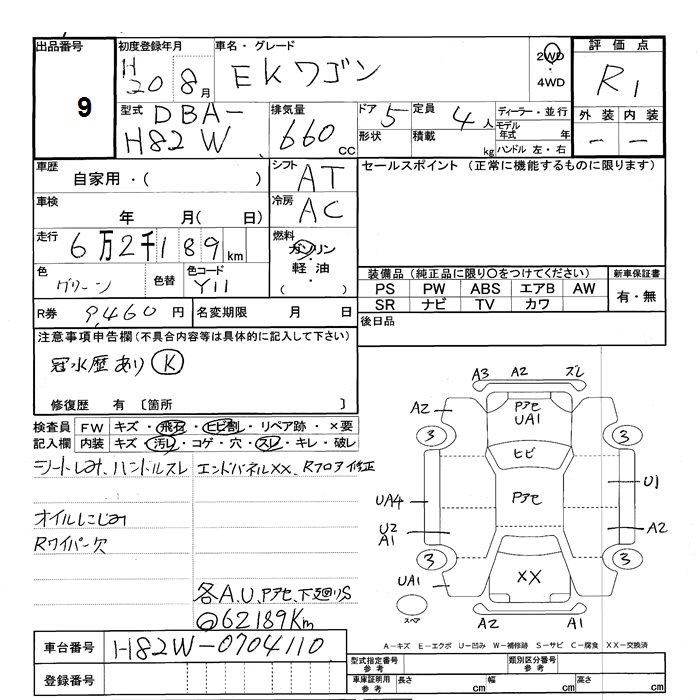 出品番号
9
初度登録年月
H20 8月
車名・グレード
EKワゴン
2WD
・
4WD
評価点
R1
外装 内装
－ －
型式 DBA-
H82W
排気量
660 cc
ドア 5
形状
定員 4人
積載 kg
ディーラー・並行
モデル年式 年
ハンドル 左・右
車歴
自家用・( )
シフト AT
セールスポイント (正常に機能するものに限ります)
車検
年 月( 日)
冷房 AC
走行 6万2千189 km
燃料
ガソリン
・
軽油
( )
色
グリーン
色替
色コード
Y11
装備品 (純正品に限り○をつけてください)
PS PW ABS エアB AW
SR ナビ TV カワ
新車保証書
有・無
R券 9,460円
名変期限 月 日
後日品
注意事項申告欄(不具合内容等は具体的に記入して下さい)
冠水歴あり Ⓚ
修復歴 有 〔箇所 〕
検査員 FW キズ・飛石・ヒビ割・リペア跡・×要
記入欄 内装 キズ・汚レ・コゲ・穴・スレ・キレ・破レ
シートしみ、ハンドルスレ
エンドパネルXX、Rフロア修正
オイルにじみ
Rワイパー欠
各A.U.Pアセ、下廻りS
@62189Km
A3 A2 ズレ
A2
Pアセ
UA1
3 3
ヒビ
UA4
Pアセ
U1
U2
A1
A2
3 3
XX
UA1
スペア
A2 A1
A－キズ E－エクボ U－凹み W－補修跡 S－サビ C－腐食 XX－交換済
車台番号 H82W-0704110
登録番号
型式指定番号
参考
類別区分番号
参考
車庫証明用
参考
長さ cm 幅 cm 高さ cm